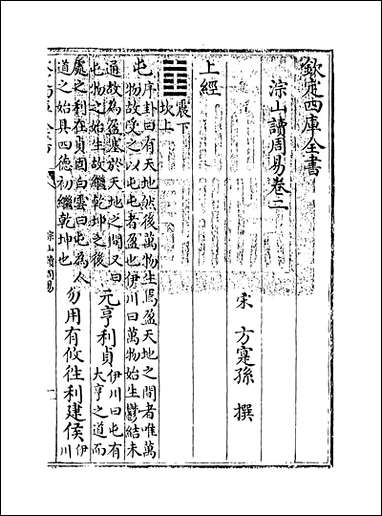 欽定四庫全書
淙山讀周易卷二
宋 方寔孫 撰
上經
䷂ 震下
坎上
屯 序卦曰有天地然後萬物生焉盈天地之間者唯萬
物故受之以屯屯者盈也伊川曰萬物始生鬱結未
通故為盈塞於天地之間又曰
屯物之始生故繼乾坤之後
元亨利貞
伊川曰屯有
大亨之道而
處之利在貞固白雲曰屯為人
道之始具四德初繼乾坤也
勿用有攸往利建侯
伊
川
淙山讀周易
一